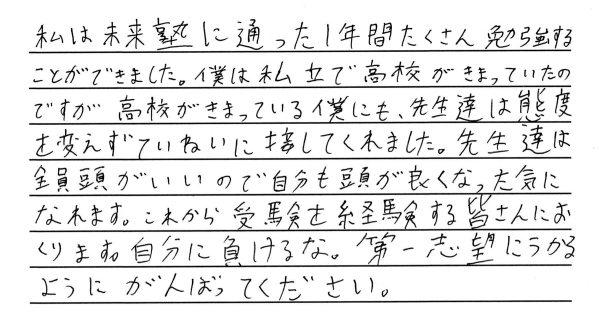 私は未来塾に通った1年間たくさん勉強する
ことができました。僕は私立で高校がきまっていたの
ですが高校がきまっている僕にも、先生達は態度
を変えずていねいに接してくれました。先生達は
全員頭がいいので自分も頭が良くなった気に
なれます。これから受験を経験する皆さんにお
くります。自分に負けるな。第一志望にうかる
ようにがんばってください。